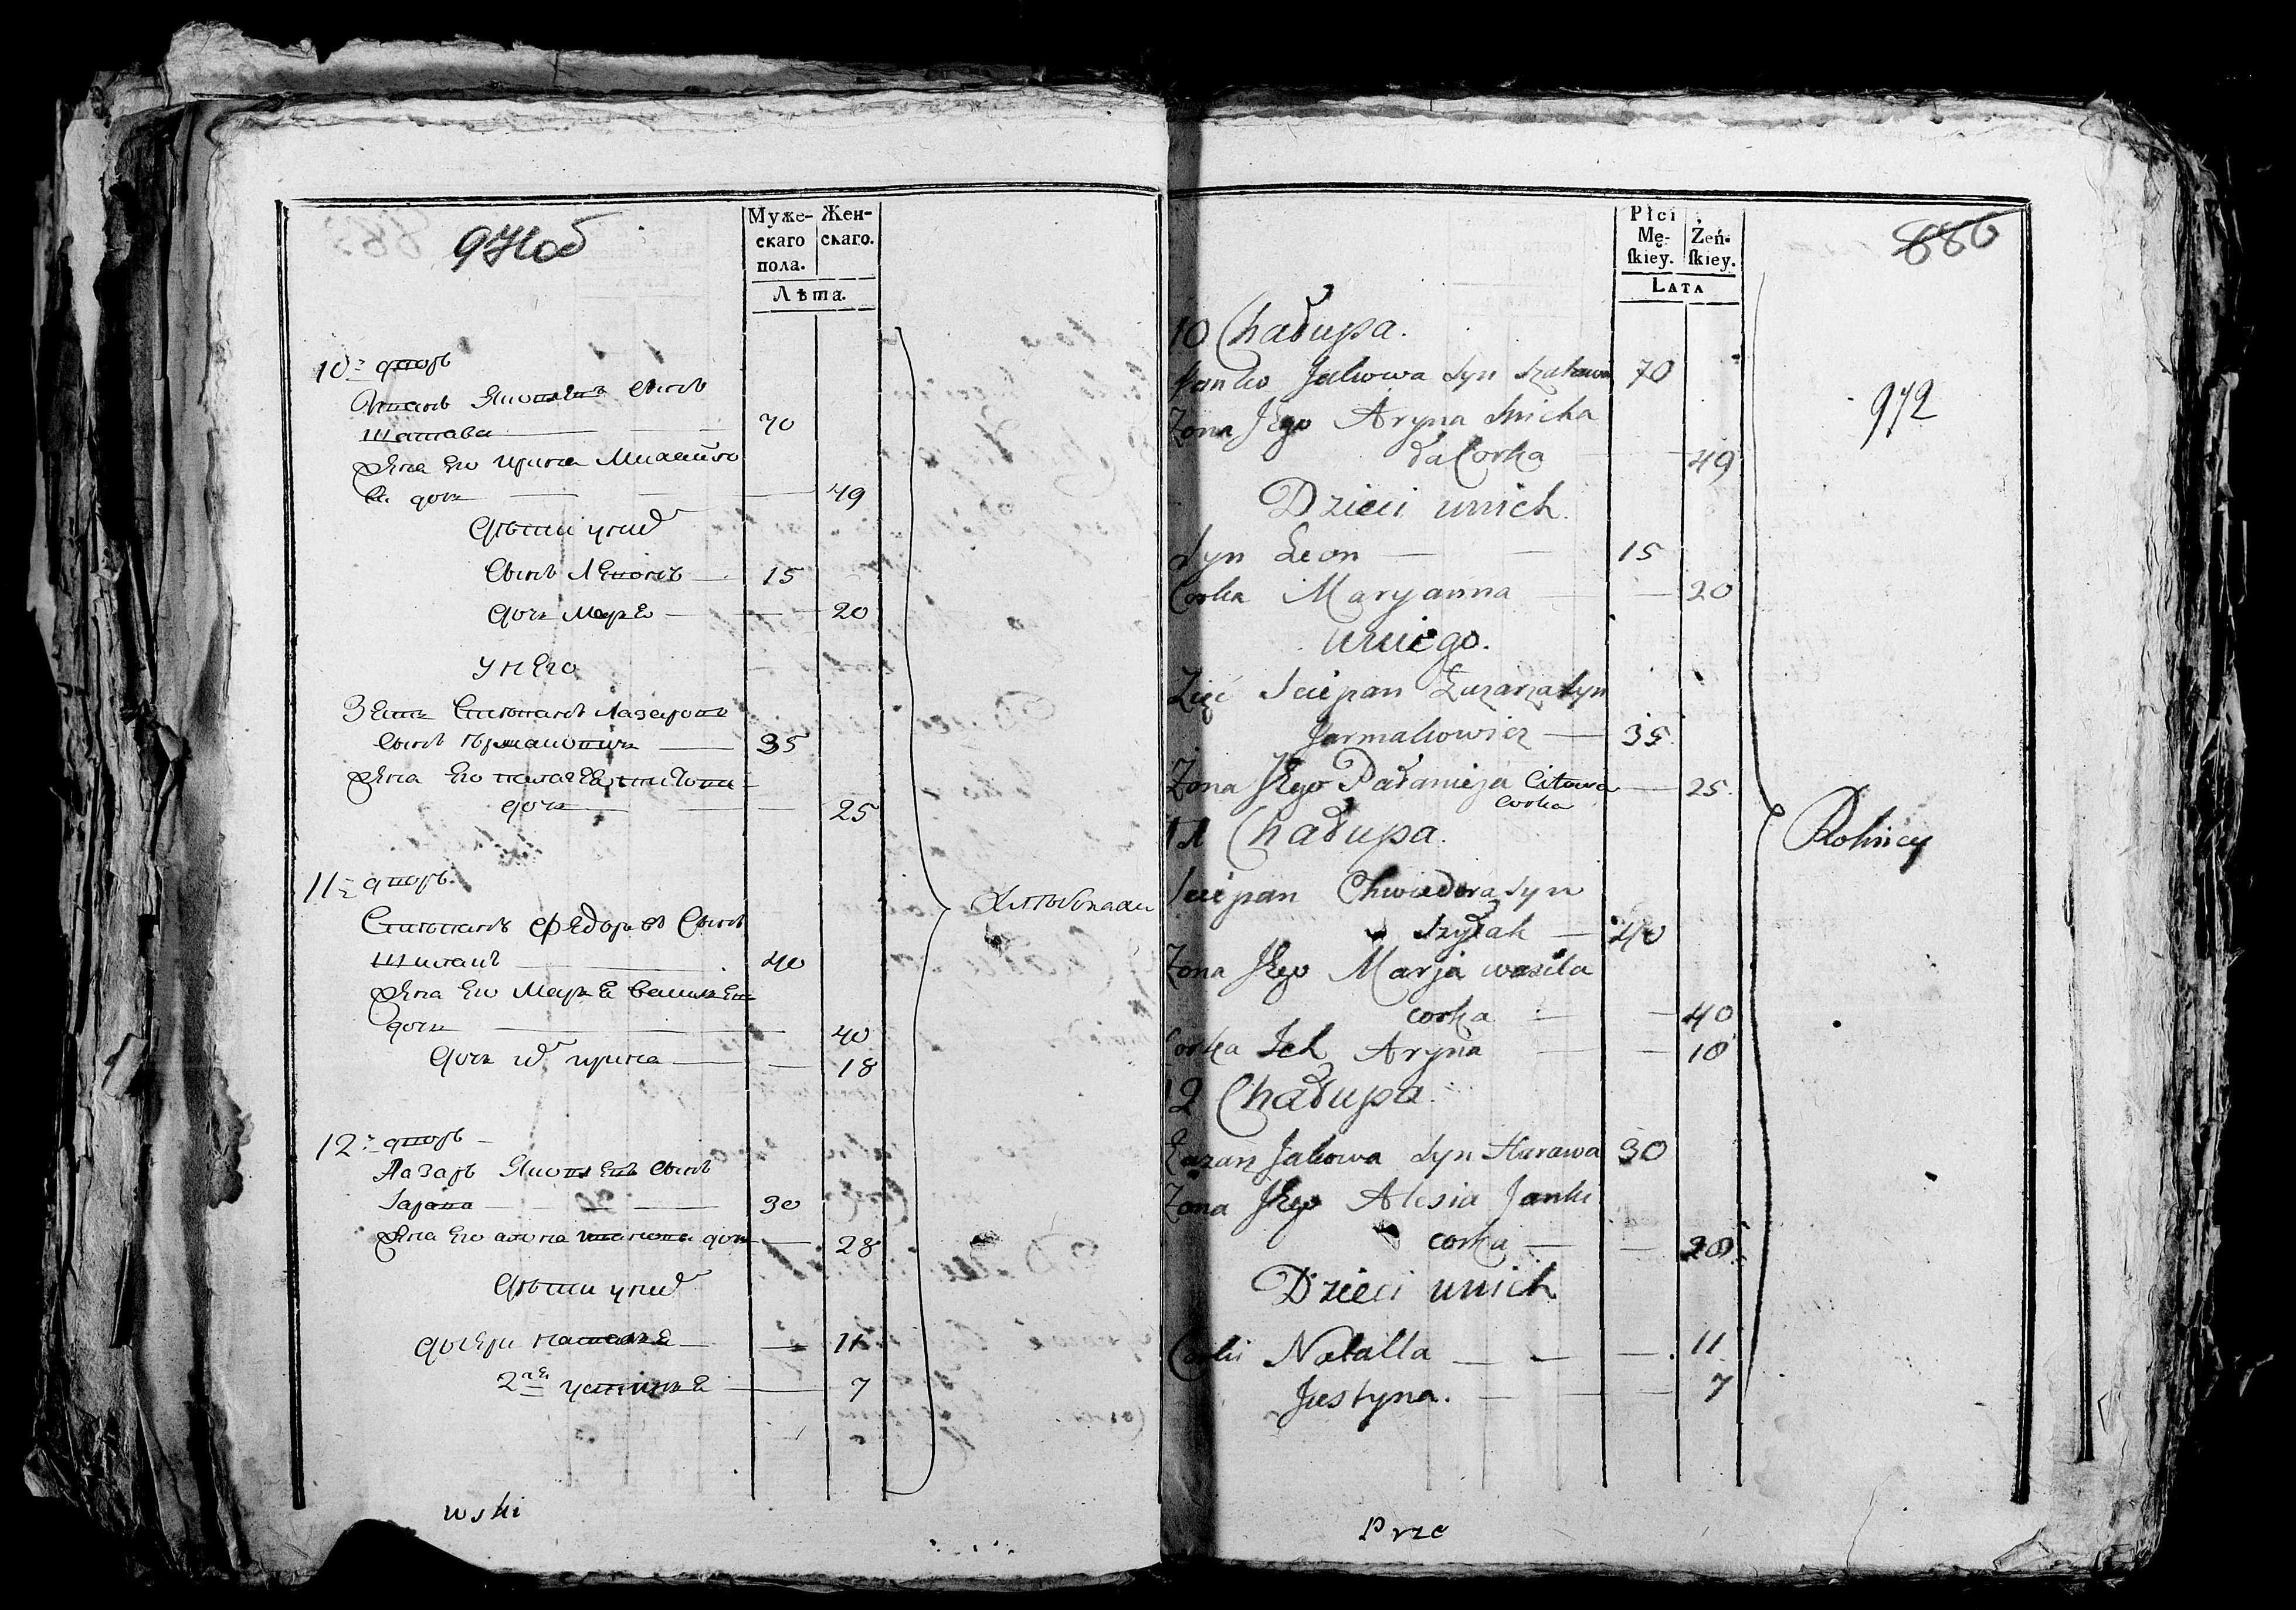 971об
Муже- Жен-
скаго скаго.
пола.
Лѣта.
10й дворъ
сынъ
Шатава 70
жена его Ирина Михайло
ва дочь 49
Дѣти у них
Сынъ Левонъ 15
дочь Маря 20
у него
Зеть Степанъ Лазаровъ
сынъ Ярмаковичъ 35
жена его
дочь 25
11й дворъ.
Степанъ Федоровъ Сынъ
Шилакъ 40
жена его Маря Васильева
дочь 40
дочь их Ирина 18
12й дворъ
Лазарь Яковлевъ сынъ
30
жена его дочь 28
Дѣти у них
дочери Наталя 11
2ая Устиня 7
Хлѣбопаш
wski
Płci
Mę- Żeń-
ſkiey. ſkiey.
LATA
886
972
10 Chałupa.
Janko Jakowa Syn Szatawa 70
Żona Jego Aryna Micha
ła Corka 49
Dzieci unich
Syn Leon 15
Corka Maryanna 20
uniego.
Zięć Sciepan Łazarza Syn
Jarmakowicz 35
Żona Jego Pałanieja Citowa 25
Corka
11 Chałupa.
Sciepan Chwiedora Syn
Szyłak 40
Żona Jego Marja wasila
corka 40
Corka Ich Aryna 18
12 Chałupa.
Łazarz Jakowa Syn Hurawa 30
Żona Jego Alesia Janki
corka 28
Dzieci unich
Corki Natalla 11
Justyna. 7
Rolnicy
Prze